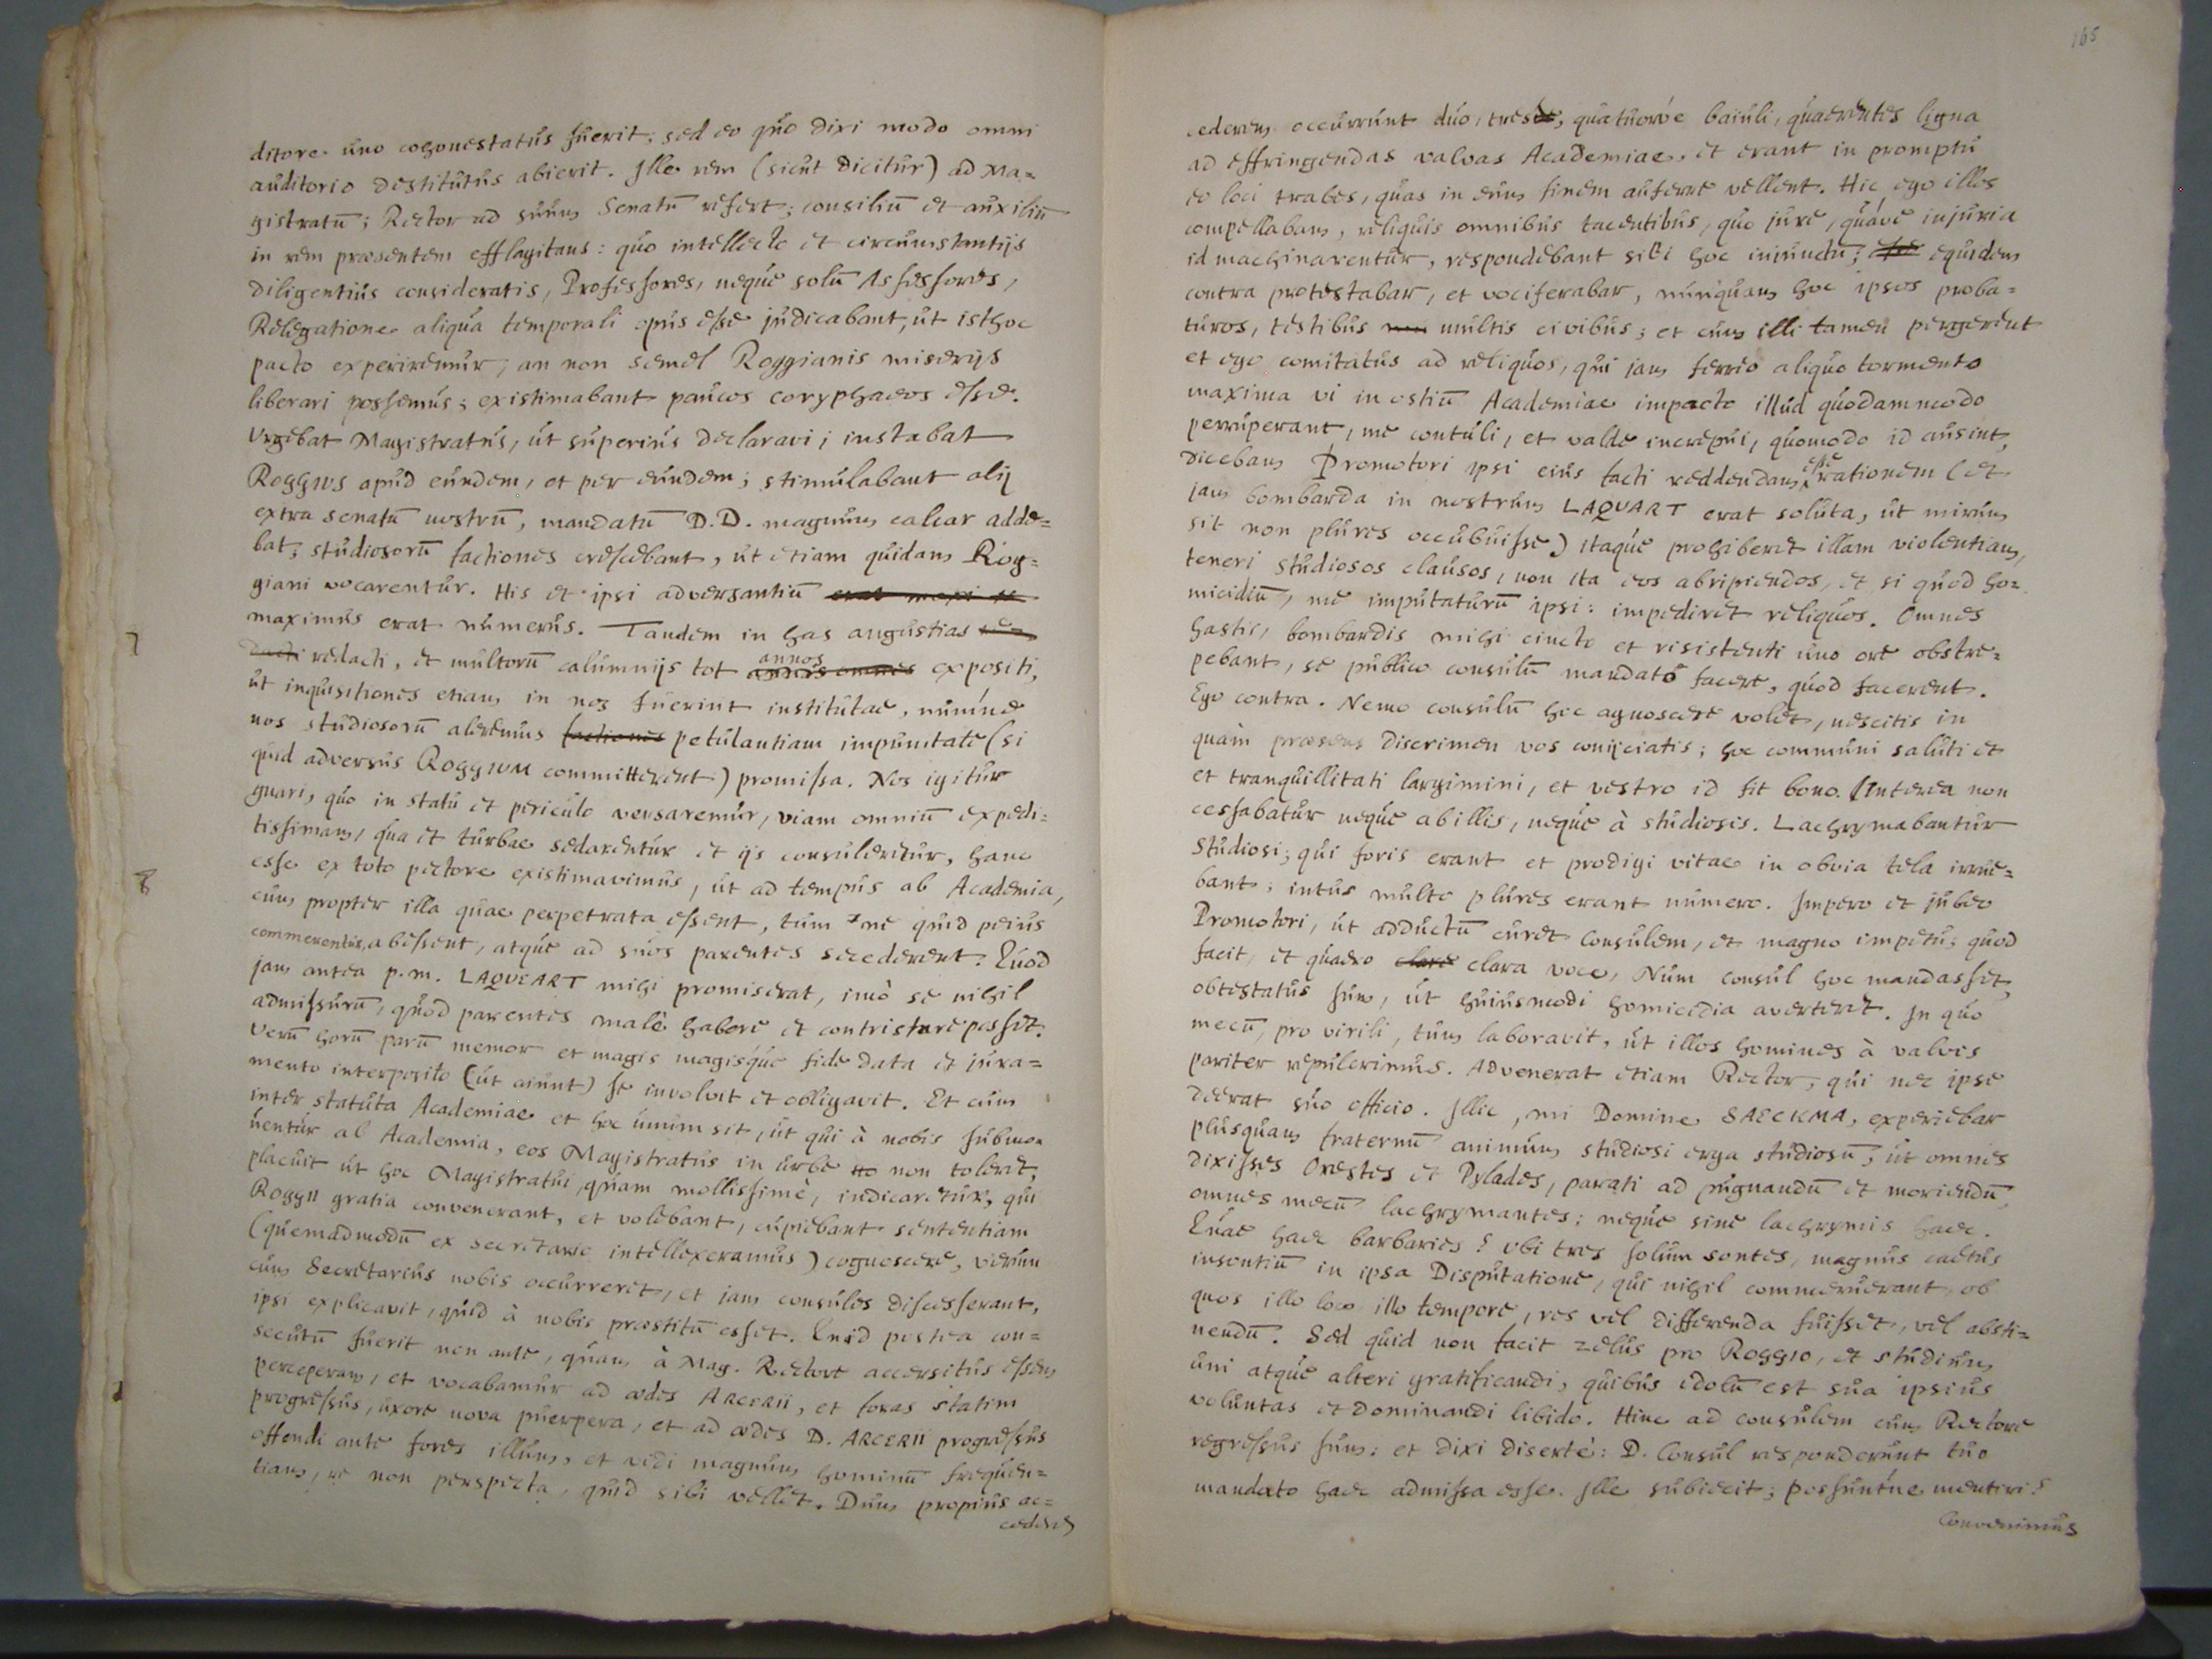 ditore uno cohonestatus fuerit; sed eo quo dixi modo omni
auditorio destitutus abierit. Ille rem (sicut dicitur) ad Ma=
gistratū; Rector ad suum Senatū refert; consiliū et auxiliū
in rem praesentem efflagitans: quo intellecto et circumstantijs
diligentius consideratis, Professores, neque solū Assessores,
Relegatione aliqua temporali opus esse judicabant, ut isthoc
pacto experiremur, an non semel Roggianis miserijs
liberari possemus; existimabant paucos coryphaeos esse.
Vrgebat Magistratus, ut superius declaravi; instabat
Roggius apud eundem, et per eundem; stimulabant alij
extra senatū nostrū, mandatū D.D. magnum calcar adde=
bat; studiosorū factiones crescebant, ut etiam quidam Rog=
giani vocarentur. His et ipsi adversantiū erat maxi
maximus erat numerus. Tandem in has angustias re=
dacti redacti, et multorū calumnijs tot annos expositi,
ut inquisitiones etiam in nos fuerint institutae, numne
nos studiosorū aleremus factiones petulantiam impunitate (si
quid adversus Roggium committerent) promissa. Nos igitur
gnari, quo in statu et periculo versaremur, viam omniū expedi=
tissimam, qua et turbae sedarentur et ijs consuleretur, hanc
esse ex toto pectore existimavimus, ut ad tempus ab Academia,
cum propter illa quae perpetrata essent, tum ne quid peius
commerentur, abessent, atque ad suos parentes secederent. Quod
jam antea p.m. LAQUEART mihi promiserat, imò se nihil
admissurū, quod parentes malè habere et contristare posset.
Verū horū parū memor et magis magisque fide data et jura=
mento interposito (ut aiunt) se involvit et obligavit. Et cum
inter statuta Academiae et hoc unum sit, ut qui à nobis submo=
uentur ab Academia, eos Magistratus in urbe to non toleret,
placuit ut hoc Magistratui, quam mollissimè, indicaretur, qui
Roggii gratia convenerant, et volebant, cupiebant sententiam
(quemadmodū ex secretario intellexeramus) cognoscere, verum
cum Secretarius nobis occurreret, et jam consules discesserant,
ipsi explicavit, quid à nobis praestitū esset. Quid postea con=
secutū fuerit non ante, quam à Mag. Rectore accersitus essem
perceperam, et vocabamur ad aedes ARCERII, et foras statim
progressus, uxore nova puerpera, et ad aedes D. ARCERII progressus
offendi ante fores illum, et vidi magnum hominū frequen=
tiam, re non perspecta, quid sibi vellet. Dum propius ac=
cederem
7
8
165
cederem occurrunt duo, tres, quatuorve baiuli, quaerentes ligna
ad effringendas valvas Academiae, et erant in promptu
eo loci trabes, quas in eum finem auferre vellent. Hic ego illos
compellabam, reliquis omnibus tacentibus, quo jure, quáve injuria
id machinarentur, respondebant sibi hoc injunctū; equidem
contra protestabar, et vociferabar, nunquam hoc ipsos proba=
turos, testibus non multis civibus; et cum illi tamen pergerent
et ego comitatus ad reliquos, qui jam ferreo aliquo tormento
maxima vi in ostiū Academiae impacto illud quodammodo
perruperant, me contuli, et valde increpui, quomodo id ausint,
dicebam Promotori ipsi eius facti reddendam esse rationem (et
jam bombarda in nostrum LAQUART erat soluta, ut mirum
sit non plures occubuisse) itaque prohiberet illam violentiam,
teneri studiosos clausos, non ita eos abripiendos, et si quod ho=
micidiū, me imputaturū ipsi: impediret reliquos. Omnes
hastis, bombardis mihi cincto et resistenti uno ore obstre=
pebant, se publico consulū mandató facere, quod facerent.
Ego contra. Nemo consulū hoc agnoscere volet, nescitis in
quàm praesens discrimen vos conijciatis; hoc communi saluti et
et tranquillitati largimini, et vestro id fit bono. Interea non
cessabatur neque ab illis, neque à studiosis. Lachrymabantur
studiosi; qui foris erant et prodigi vitae in obvia tela irrue=
bant; intus multo plures erant numero. Impero et jubeo
Promotori, ut adductū curet Consulem, et magno impetu; quod
facit, et quaero clare clara voce, Num consul hoc mandasset,
obtestatus sum, ut huiusmodi homicidia averteret. In quo
mecū, pro virili, tum laboravit, ut illos homines à valvis
pariter repulerimus. Advenerat etiam Rector, qui nec ipse
deerat suo officio. Illic, mi Domine SAECKMA, experiebar
plusquam fraternū animum studiosi erga studiosū, ut omnes
dixisses Orestes et Pylades, parati ad pugnandū et moriendū,
omnes mecū lachrymantes; neque sine lachrymis haec.
Quae haec barbaries? ubi tres solum sontes, magnus caetus
insontiū in ipsa Disputatione, qui nihil commeruerant, ob
quos illo loco illo tempore, res vel differenda fuisset, vel absti=
nendū. Sed quid non facit zelus pro Roggio, et studium
uni atque alteri gratificandi, quibus idolū est sua ipsius
voluntas et dominandi libido. Hinc ad consulem cum Rectore
regressus sum: et dixi disertè: D. Consul responderunt tuo
mandato haec admissa esse. Ille subiecit; possuntne mentiri?
Convenimus